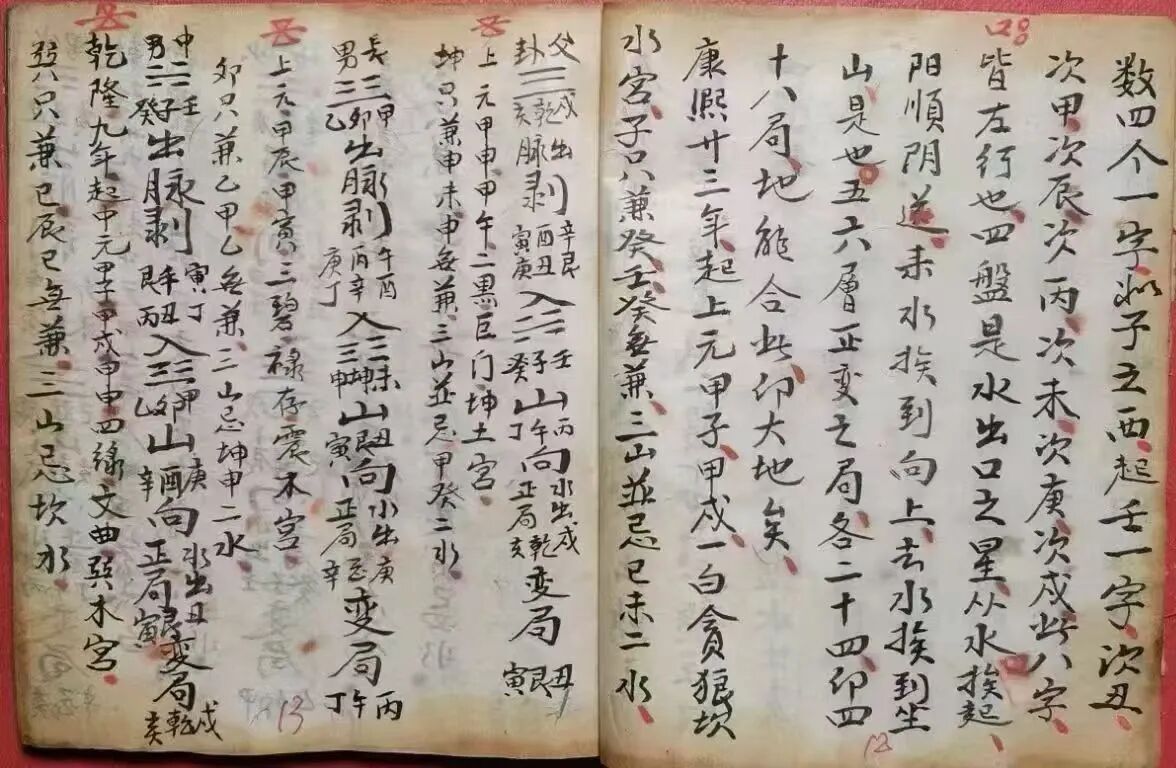 数四个一字从子之西起壬一字次丑
次甲次辰次丙次未次庚次戌此八字
皆左行也四盤是水出口之星从水挨起
阳順阴逆来水挨到向上去水挨到坐
山是也五六層正变之局各二十四卯四
十八局地能合此卯大地矣
康熙廿三年起上元甲子甲戌一白貪狼坎
水宮子只兼癸壬癸無兼三山並忌巳未二水
12
父 戌
卦三乾出
亥脉剥 酉辛艮 寅丑庚 入二 壬子癸 山 丙午丁 向 水出戌 正局 乾亥 变局 丑艮寅
上元甲申甲午二黑巨门坤土宮
坤只兼申未申無兼三山並忌甲癸二水
長男三 甲卯乙 出脉剥 午酉丙辛庚丁 入三 未坤申 山 丑艮寅 向 水出庚 正局 辛 变局 丙午丁
上元甲辰甲寅三碧禄存震木宮
卯只兼乙甲乙無兼三山忌坤申二水
中男二 壬子癸 出脉剥 寅丁艮丑丙 入三 甲卯乙 山 庚酉辛 向 水出丑 正局 艮寅 变局 戌乾亥
乾隆九年起中元甲子甲戌甲申四緑文曲巽木宮
巽只兼巳辰巳無兼三山忌坎水
13